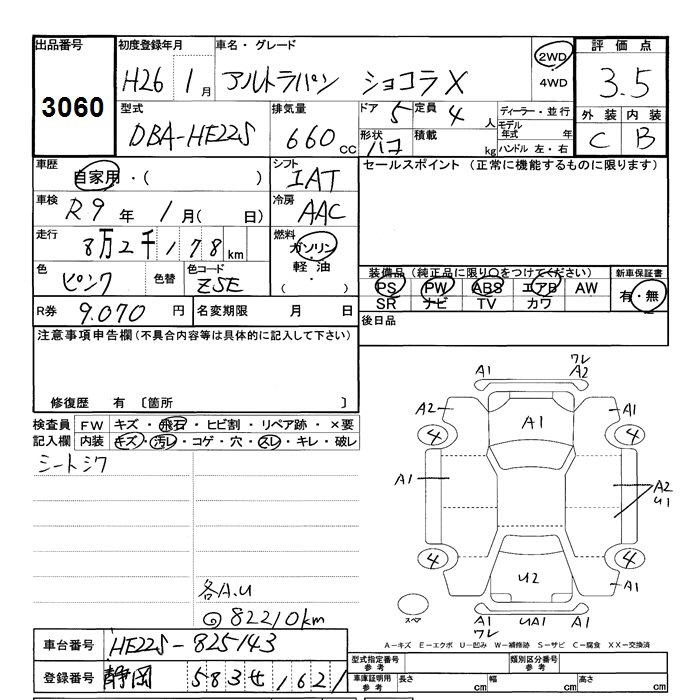 出品番号 初度登録年月 車名・グレード 2WD 評価点
3060 H26 1月 アルトラパン ショコラX 4WD 3.5
型式 排気量 ドア 5 定員 4人 ディーラー・並行 外装 内装
DBA-HE22S 660cc 形状 ハコ 積載 kg モデル年式 年 C B
ハンドル 左・右
車歴 自家用・( ) シフト IAT セールスポイント (正常に機能するものに限ります)
車検 R9年 1月( 日) 冷房 AAC
走行 8万2千178km 燃料 ガソリン
軽油
・( )
色 ピンク 色替 色コード ZSE 装備品(純正品に限り○をつけてください) 新車保証書
PS PW ABS エアB AW 有・無
SR ナビ TV カワ
R券 9.070円 名変期限 月 日 後日品
注意事項申告欄(不具合内容等は具体的に記入して下さい)
修復歴 有 〔箇所 〕
検査員 FW キズ・飛石・ヒビ割・リペア跡・×要
記入欄 内装 キズ・汚レ・コゲ・穴・スレ・キレ・破レ
シートシワ
各A.U
@82210km
A1 ワレ A2
A2 A1 A1
4 4
A1 A2
U1
4 4
U2 A1
スペア
A1 UA1 A1
ワレ
A-キズ E-エクボ U-凹み W-補修跡 S-サビ C-腐食 XX-交換済
車台番号 HE22S-825143 型式指定番号 参考 類別区分番号 参考
登録番号 静岡 583 せ 1621 車庫証明用 参考 長さ cm 幅 cm 高さ cm